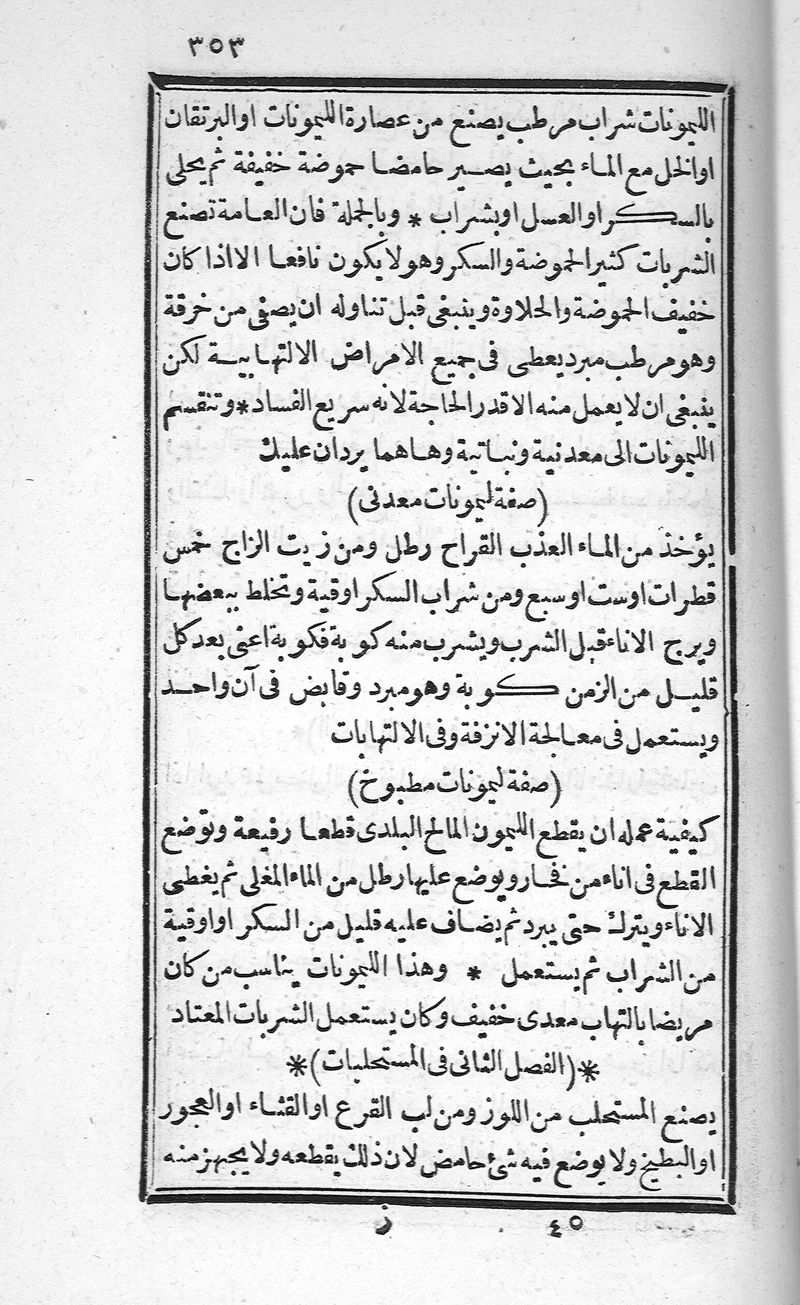 ٣٥٣
الليمونات شراب مرطب يصنع من عصارة الليمونات او البرتقان
او الخل مع الماء بحيث يصير حامضا حموضة خفيفة ثم يحلى
بالسكر او العسل او بشراب * وبالجملة فان العامة تصنع
الشربات كثير الحموضة والسكر وهو لا يكون نافعا الا اذا كان
خفيف الحموضة والحلاوة وينبغى قبل تناوله ان يصفى من خرقة
وهو مرطب مبرد يعطى فى جميع الامراض الالتهابية لكن
ينبغى ان لا يعمل منه الا قدر الحاجة لانه سريع الفساد * وتنقسم
الليمونات الى معدنية ونباتية وها هما يردان عليك
(صفة ليمونات معدنى)
يؤخذ من الماء العذب القراح رطل ومن زيت الزاج خمس
قطرات اوست اوسبع ومن شراب السكر اوقية وتخلط ببعضها
ويرج الاناء قبل الشرب ويشرب منه كوبة فكوبة اعنى بعد كل
قليل من الزمن كوبة وهو مبرد وقابض فى آن واحد
ويستعمل فى معالجة الانزفة وفى الالتهابات
(صفة ليمونات مطبوخ)
كيفية عمله ان يقطع الليمون المالح البلدى قطعا رفيعة وتوضع
القطع فى اناء من فخار ويوضع عليها رطل من الماء المغلى ثم يغطى
الاناء ويترك حتى يبرد ثم يضاف عليه قليل من السكر او اوقية
من الشراب ثم يستعمل * وهذا الليمونات يناسب من كان
مريضا بالتهاب معدى خفيف وكان يستعمل الشربات المعتاد
*(الفصل الثانى فى المستحلبات)*
يصنع المستحلب من اللوز ومن لب القرع او القثاء او العجور
او البطيخ ولا يوضع فيه شئ حامض لان ذلك يقطعه ولا يجهز منه
٤٥ ز